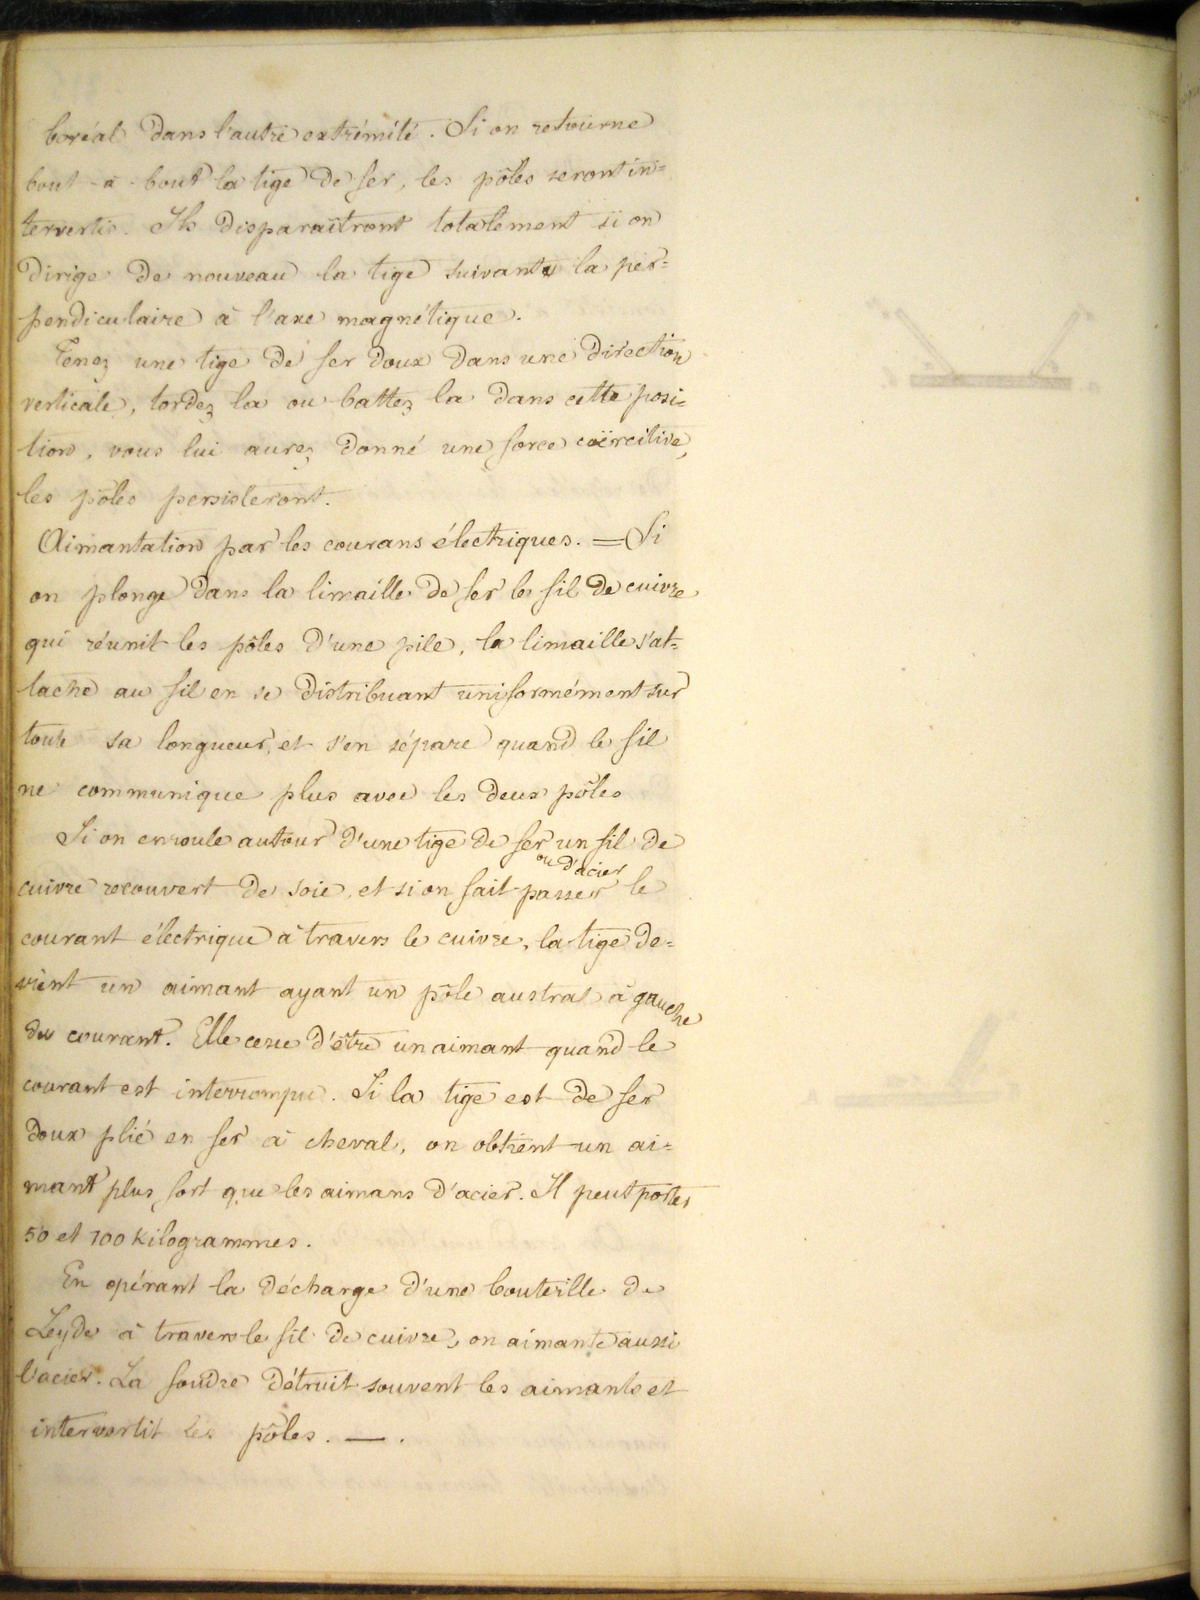 boréal dans l'autre extrémité. Si on retourne
bout-à-bout la tige de fer, les pôles seront in=
tervertis. Ils disparaitront totalement si on
dirige de nouveau la tige suivant la per=
pendiculaire à l'axe magnétique.
Tenez une tige de fer doux dans une direction
verticale, tordez la ou battez la dans cette posi=
tion, vous lui aurez donné une force coërcitive,
les pôles persisteront.
Aimantation par les courans électriques. = Si
on plonge dans la limaille de fer le fil de cuivre
qui réunit les pôles d'une pile, la limaille s'at=
tache au fil en se distribuant uniformément sur
toute sa longueur, et s'en sépare quand le fil
ne communique plus avec les deux pôles
Si on enroule autour d'une tige de fer un fil de
ou d'acier
cuivre recouvert de soie, et si on fait passer le
courant électrique à travers le cuivre, la tige de=
vient un aimant ayant un pôle austral à gauche
du courant. Elle cesse d'être un aimant quand le
courant est interrompu. Si la tige est de fer
doux plié en fer à cheval, on obtient un ai=
mant plus fort que les aimans d'acier. Il peut porter
50 et 100 Kilogrammes.
En opérant la décharge d'une bouteille de
Leyde à travers le fil de cuivre, on aimante aussi
l'acier. La foudre détruit souvent les aimants et
intervertit les pôles. — .